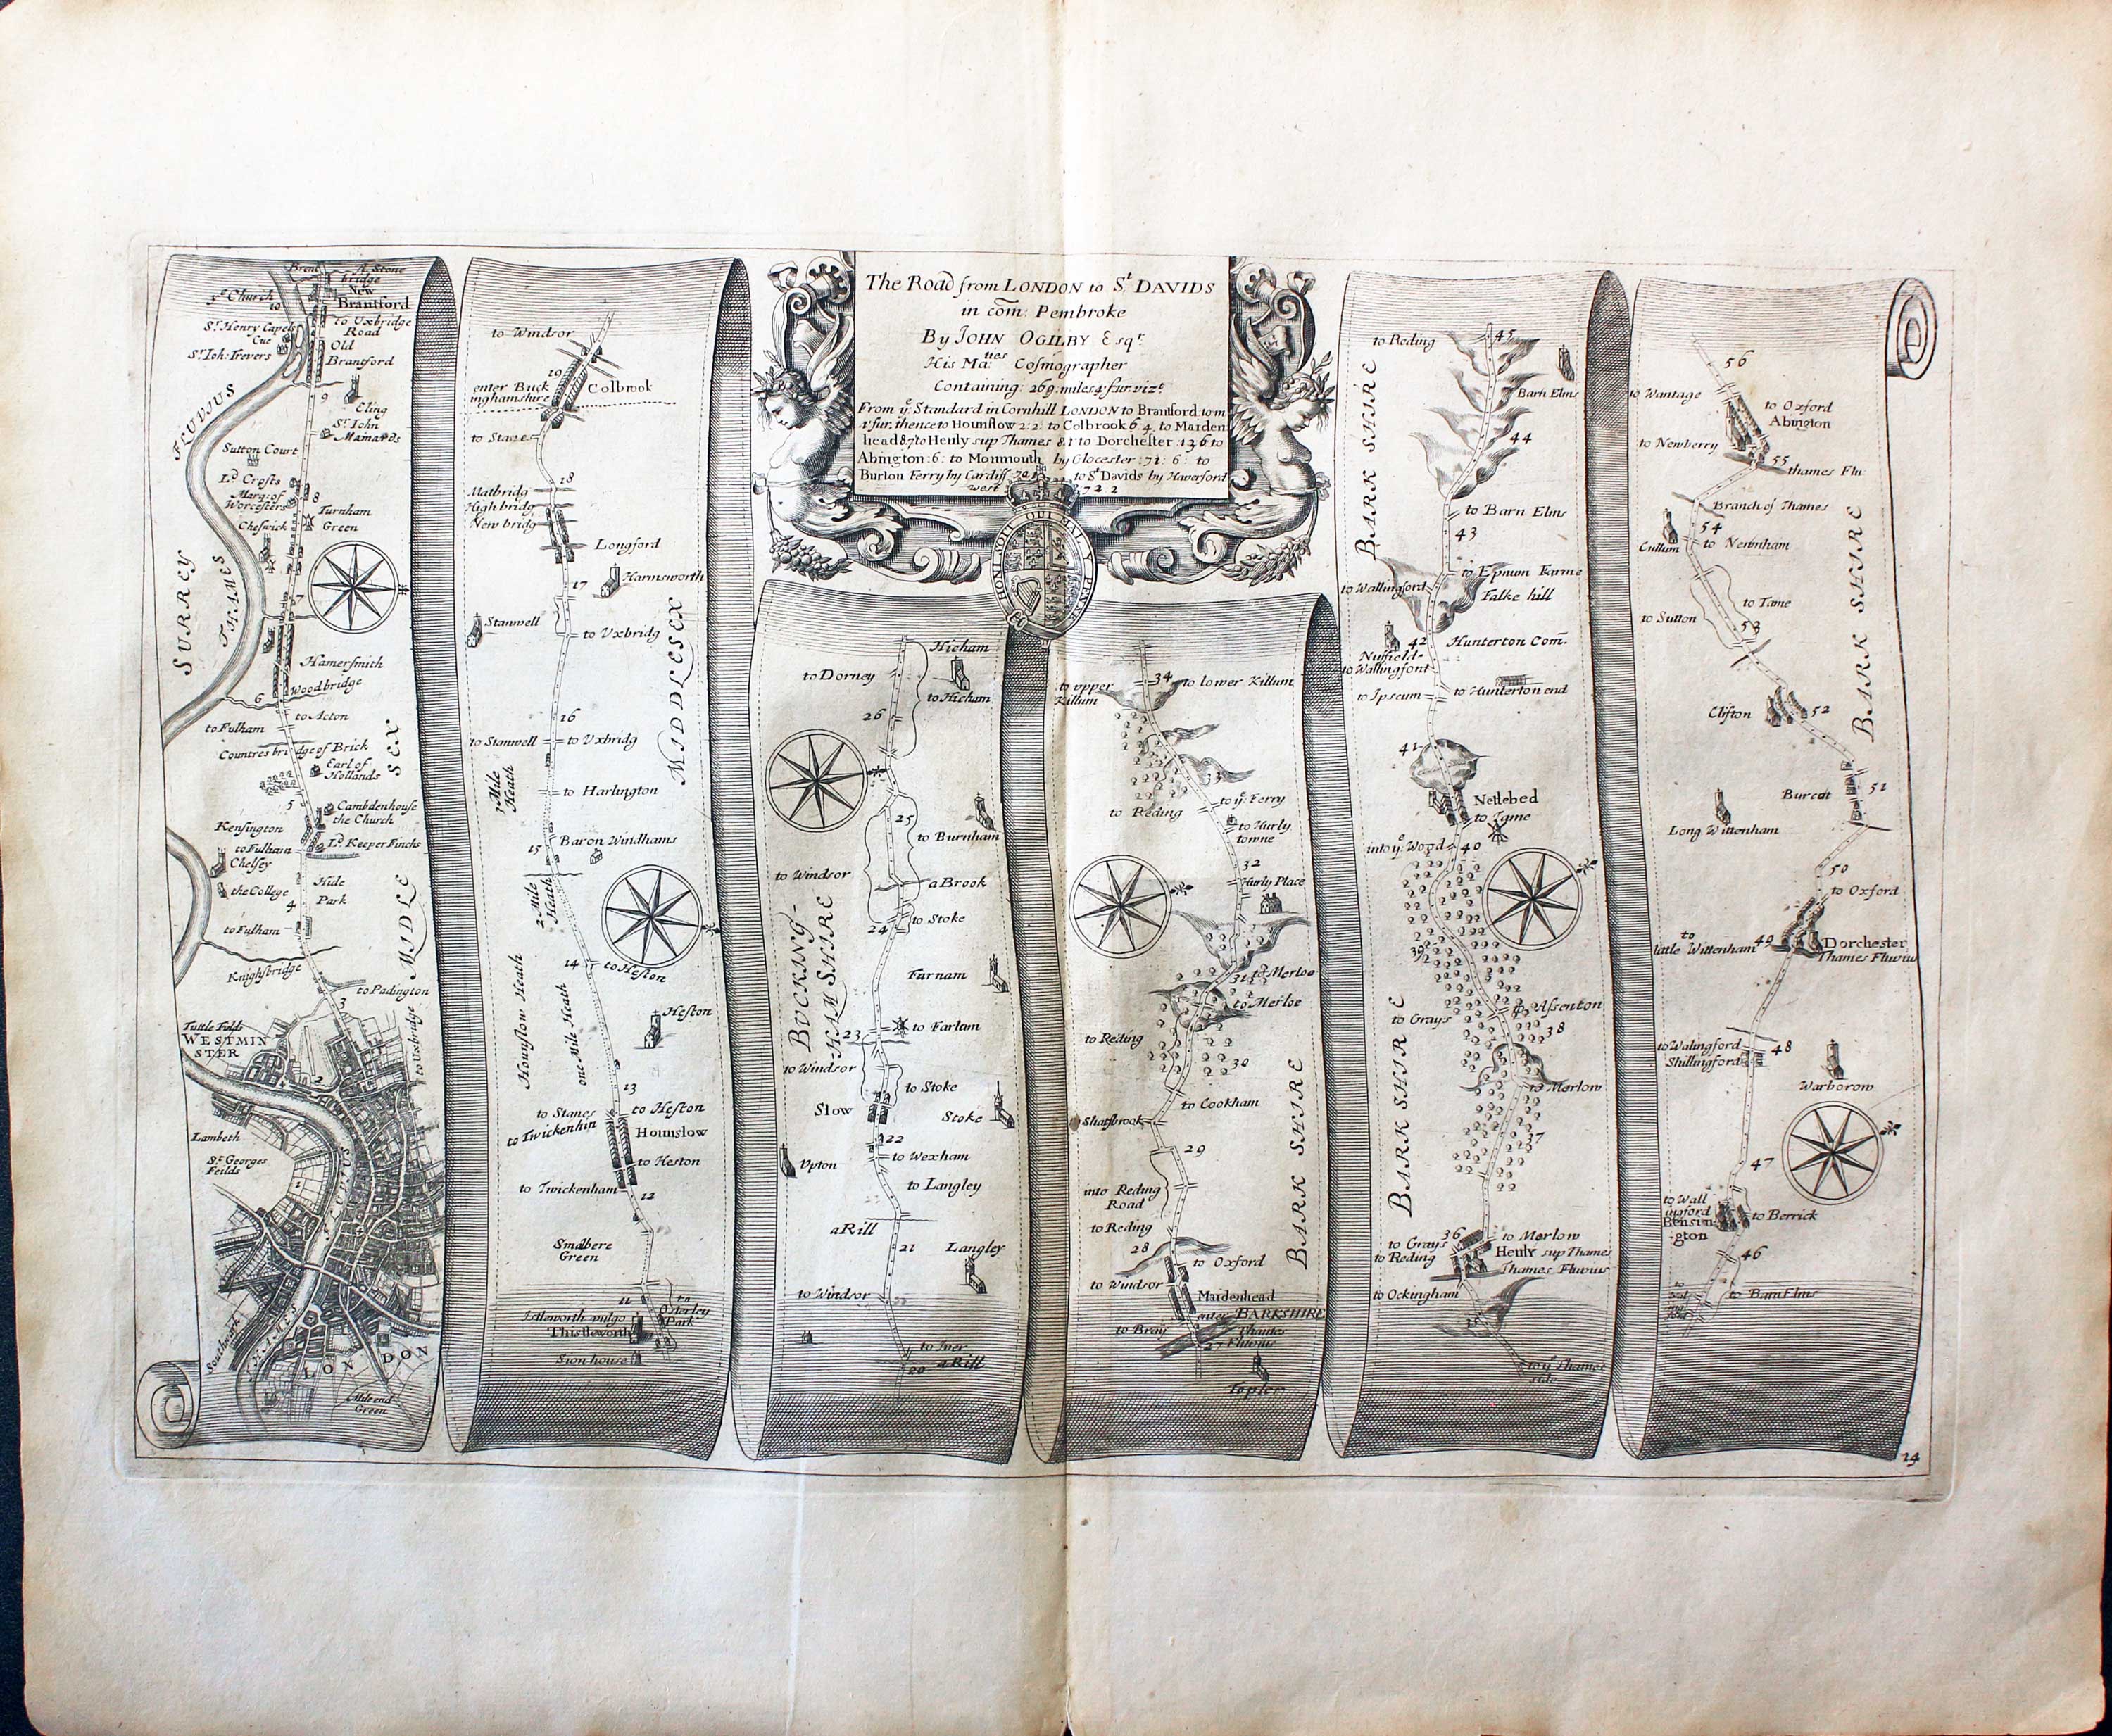 The Road from LONDON to St. DAVIDS
in com: Pembroke
By JOHN OGILBY Esqr.
His Ma:ties Cosmographer
Containing: 269 miles 4 fur. vizt
From ye Standard in Cornhill LONDON to Brantford 10 m
thence to Hounslow 2:2: to Colbrook 6 4 to Marden
head 8 7 to Henly sup Thames 8 1 to Dorchester 13 6 to
Abington: 6: to Monmouth by Glocester: 71: 6: to
Burton Ferry by Cardiff to St Davids by Haverford
west
HONI SOIT QUI MAL Y PENSE
Brent
A Stone
bridge
New
Brantford
ye Church
to
to Uxbridge
Road
Sr. Henry Capels
Cue
Old
Brantford
Sr. Joh: Trevers
9
Eling
Sr. John
Mainards
FLUVIUS
THAMES
SURREY
Sutton Court
Ld. Crofts
Marq: of
Worcesters
8
Turnham
Green
Cheswick
7
Hamersmith
Woodbridge
6
to Acton
to Fulham
Countres bridge of Brick
Earl of
Hollands
5
Cambdenhouse
the Church
Kensington
Ld. Keeper Finchs
to Fulham
Chelsey
the College
Hide
Park
4
to Fulham
MIDLE
SEX
Knighsbridge
to Padington
3
to Uxbridge
Tuttle Feilds
WESTMIN
STER
2
Lambeth
St. Georges
Feilds
1
FLUVIUS
THAMES
Southwark
LONDON
Mile end
Green
to Windsor
19
enter Buck
inghamshire
Colbrook
to Stanes
18
Matbridg
High bridg
New bridg
Longford
17
Harmsworth
Stanwell
to Uxbridg
MIDDLESEX
16
to Stanwell
to Uxbridg
3 Mile
Heath
to Harlington
Baron Windhams
15
2 Mile
Heath
14
to Heston
Hounslow Heath
one Mile Heath
Heston
13
to Stanes
to Heston
to Twickenhm
Hounslow
to Heston
to Twickenham
12
Smalbere
Green
11
to
Osterley
Park
Istleworth vulgo
Thistleworth
Sion house
Hicham
to Dorney
to Hicham
26
25
to Burnham
to Windsor
a Brook
to Stoke
24
BUCKING-
HAMSHIRE
Farnam
to Farlam
23
to Windsor
to Stoke
Slow
Stoke
22
Upton
to Wexham
to Langley
a Rill
21
Langley
to Windsor
to Iver
20
a Rill
34
to upper
Killum
to lower Killum
33
to ye Ferry
to Reding
to Hurly
towne
32
Hurly Place
31
to Merloe
to Merloe
to Reding
30
to Cookham
Shatsbrook
29
into Reding
Road
to Reding
28
to Oxford
to Windsor
Mardenhead
enter BARKSHIRE
to Bray
Thames
Fluvius
27
Topler
BARK SHIRE
45
to Reding
Barn Elms
44
to Barn Elms
43
to Wallingford
Falke hill
42
Hunterton Com.
Nufield
to Wallingfont
to Ipscum
to Hunterton end
41
Netlebed
to Tame
into ye Wood
40
39
Assenton
38
to Grays
to Merlow
37
36
to Merlow
to Grays
to Reding
Henly sup Thames
Thames Fluvius
to Ockingham
35
to ye Thames
side
BARK SHIRE
BARK SHIRE
56
to Wantage
to Oxford
Abington
to Newberry
55
thames Flu:
Branch of Thames
54
Cullum
to Newnham
to Tame
to Sutton
53
BARK SHIRE
Clifton
52
51
Burcot
Long Wittenham
50
to Oxford
to
little Wittenham
49
Dorchester
Thames Fluvius
to Walingford
Shillingford
48
Warborow
47
to Wall
ingford
Bensin
-gton
to Berrick
46
to Barn Elms
14